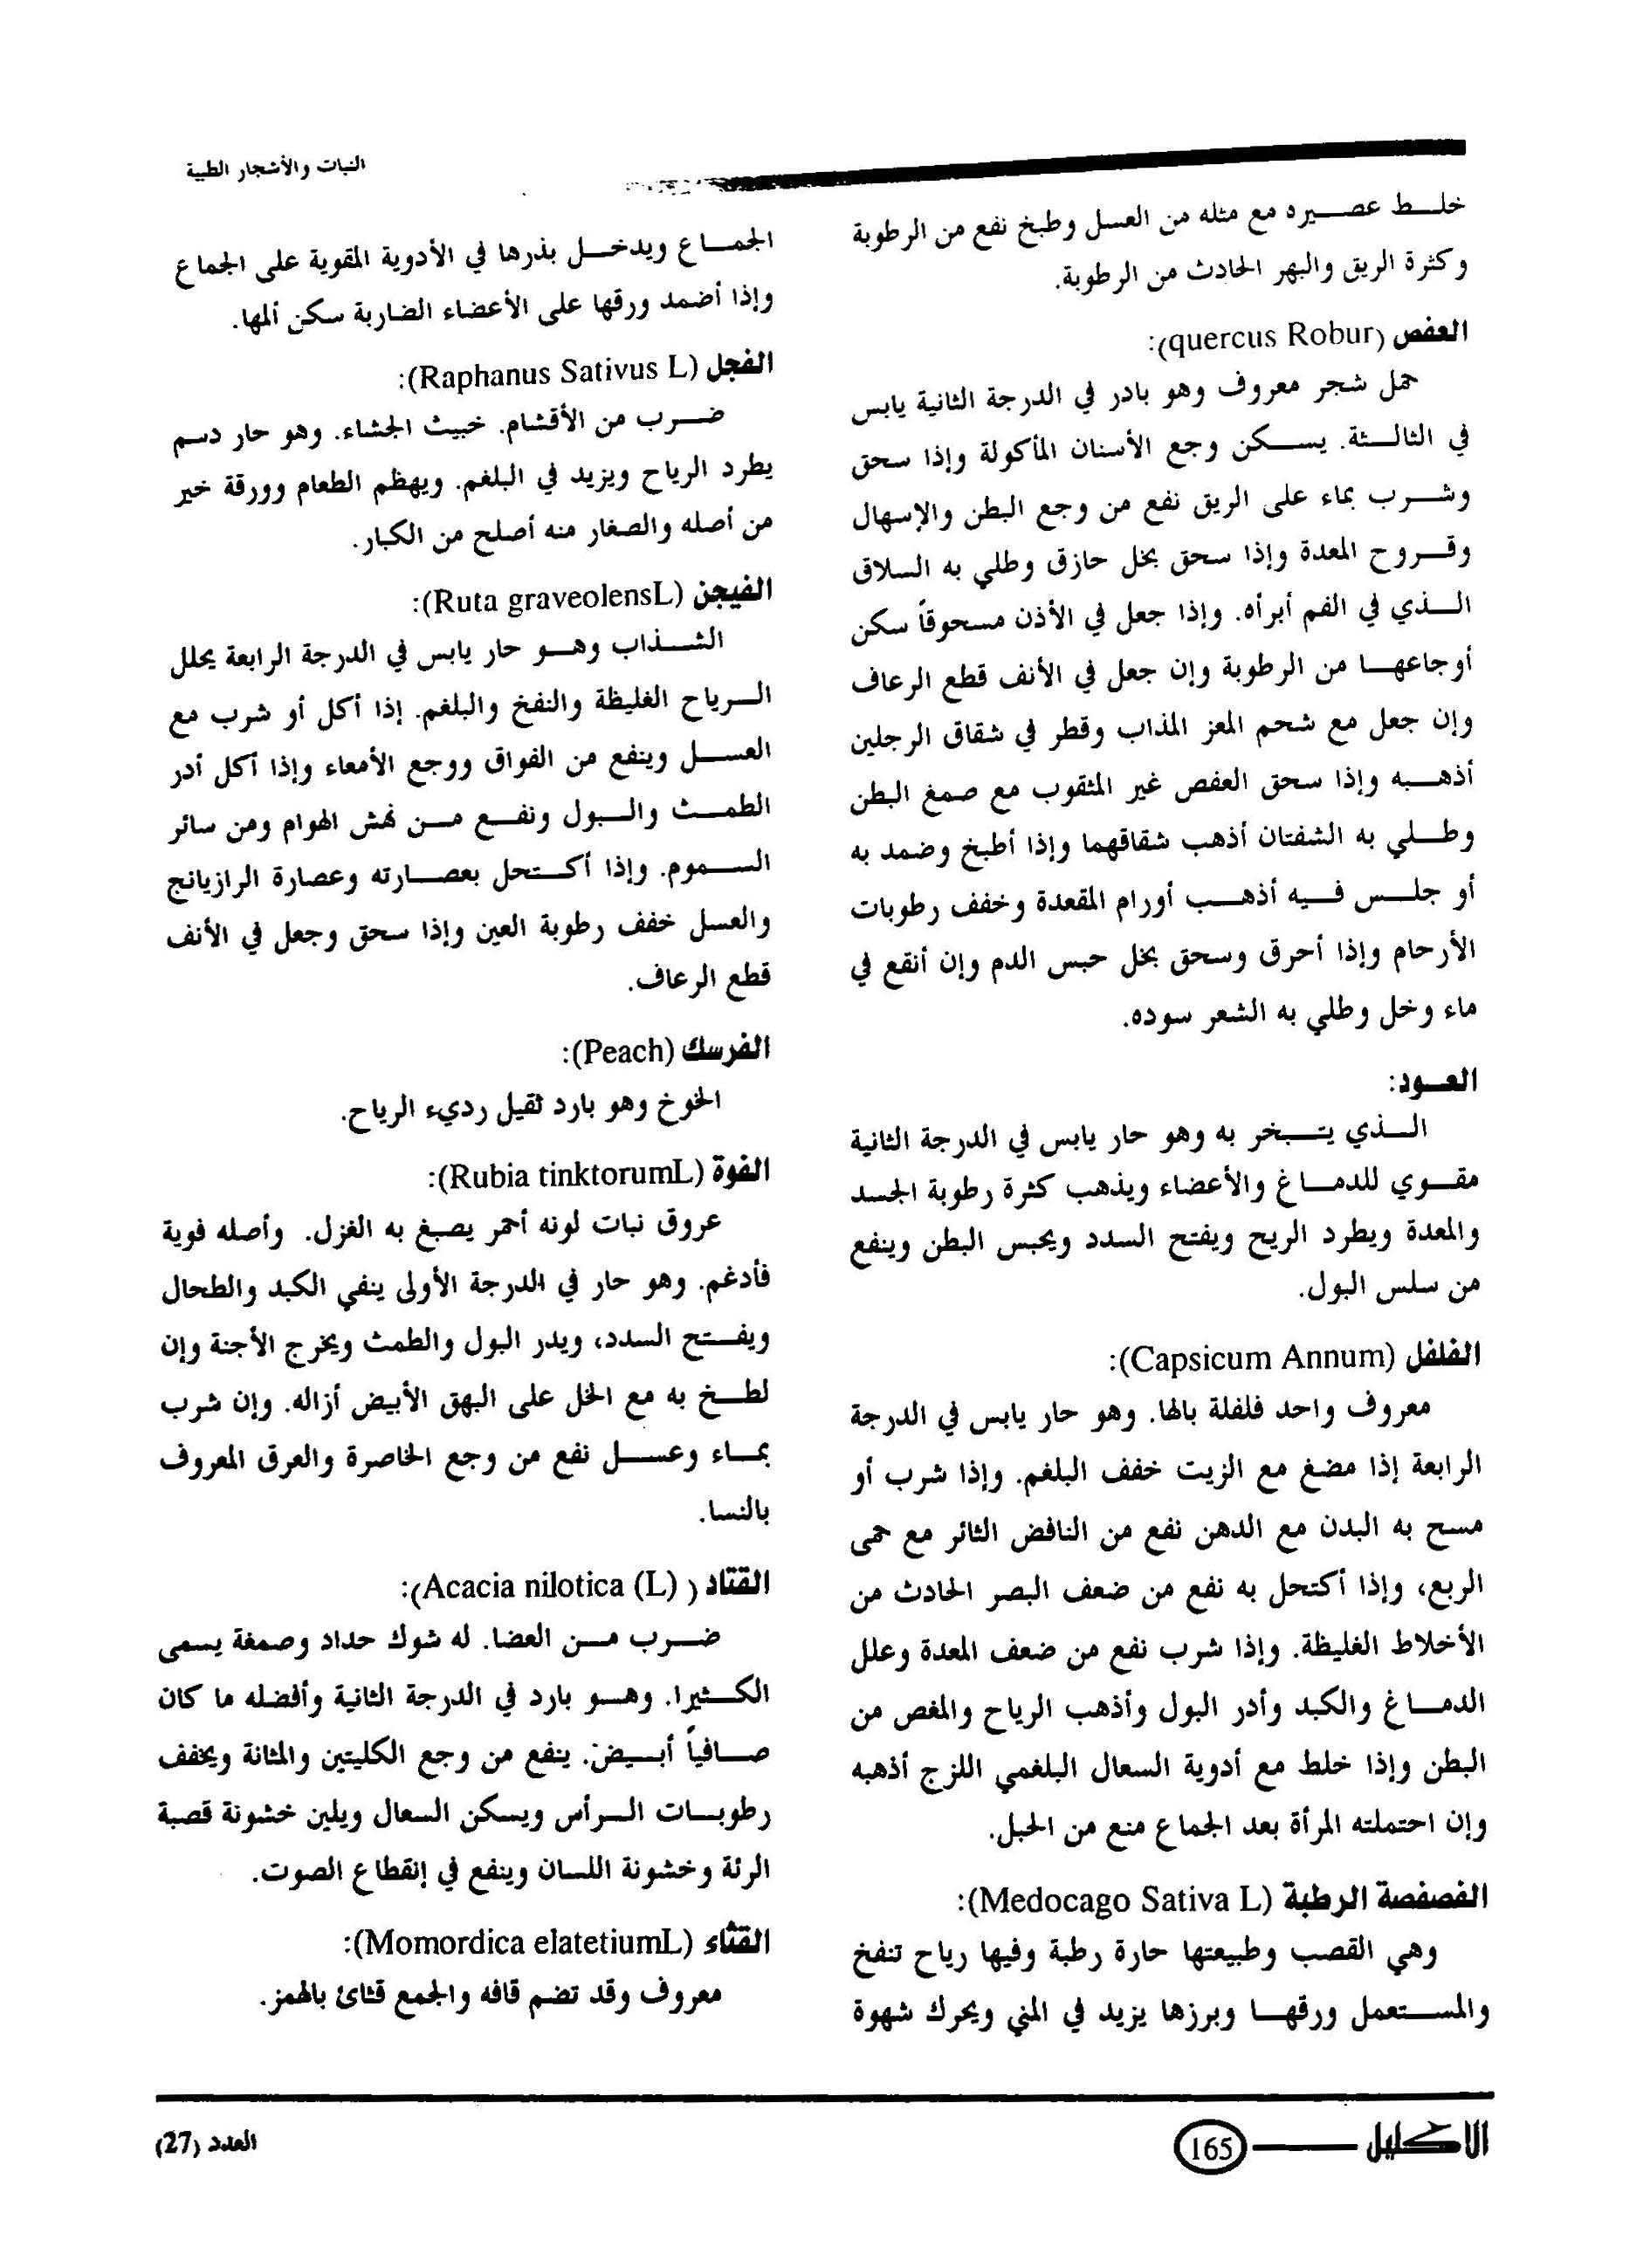 النبات والأشجار الطبية
خلط عصيره مع مثله من العسل وطبخ نفع من الرطوبة
وكثرة الريق والبهر الحادث من الرطوبة.
العفص (quercus Robur):
حمل شجر معروف وهو بادر في الدرجة الثانية يابس
في الثالثة. يسكن وجع الأسنان المأكولة وإذا سحق
وشرب بماء على الريق نفع من وجع البطن والإسهال
وقروح المعدة وإذا سحق بخل حازق وطلي به السلاق
الذي في الفم أبرأه. وإذا جعل في الأذن مسحوقاً سكن
أوجاعها من الرطوبة وإن جعل في الأنف قطع الرعاف
وإن جعل مع شحم المعز المذاب وقطر في شقاق الرجلين
أذهبه وإذا سحق العفص غير المثقوب مع صمغ البطن
وطلي به الشفتان أذهب شقاقهما وإذا أطبخ وضمد به
أو جلس فيه أذهب أورام المقعدة وخفف رطوبات
الأرحام وإذا أحرق وسحق بخل حبس الدم وإن أنقع في
ماء وخل وطلي به الشعر سوده.
العود:
الذي يتبخر به وهو حار يابس في الدرجة الثانية
مقوي للدماغ والأعضاء ويذهب كثرة رطوبة الجسد
والمعدة ويطرد الريح ويفتح السدد ويحبس البطن وينفع
من سلس البول.
الفلفل (Capsicum Annum):
معروف واحد فلفلة بالها. وهو حار يابس في الدرجة
الرابعة إذا مضغ مع الزيت خفف البلغم. وإذا شرب أو
مسح به البدن مع الدهن نفع من النافض الثائر مع حمى
الربع، وإذا أكتحل به نفع من ضعف البصر الحادث من
الأخلاط الغليظة. وإذا شرب نفع من ضعف المعدة وعلل
الدماغ والكبد وأدر البول وأذهب الرياح والمغص من
البطن وإذا خلط مع أدوية السعال البلغمي اللزج أذهبه
وإن احتملته المرأة بعد الجماع منع من الحبل.
الفصفصة الرطبة (Medocago Sativa L):
وهي القصب وطبيعتها حارة رطبة وفيها رياح تنفخ
والمستعمل ورقها وبرزها يزيد في المني ويحرك شهوة
الجماع ويدخل بذرها في الأدوية المقوية على الجماع
وإذا أضمد ورقها على الأعضاء الضاربة سكن ألمها.
الفجل (Raphanus Sativus L):
ضرب من الأقشام. خبيث الجشاء. وهو حار دسم
يطرد الرياح ويزيد في البلغم. ويهظم الطعام وورقة خير
من أصله والصغار منه أصلح من الكبار.
الفيجن (Ruta graveolensL):
الشذاب وهو حار يابس في الدرجة الرابعة يحلل
الرياح الغليظة والنفخ والبلغم. إذا أكل أو شرب مع
العسل وينفع من الفواق ووجع الأمعاء وإذا أكل أدر
الطمث والبول ونفع من نهش الهوام ومن سائر
السموم. وإذا أكتحل بعصارته وعصارة الرازيانج
والعسل خفف رطوبة العين وإذا سحق وجعل في الأنف
قطع الرعاف.
الفرسك (Peach):
الخوخ وهو بارد ثقيل رديء الرياح.
الفوة (Rubia tinktorumL):
عروق نبات لونه أحمر يصبغ به الغزل. وأصله فوية
فأدغم. وهو حار في الدرجة الأولى ينفي الكبد والطحال
ويفتح السدد، ويدر البول والطمث ويخرج الأجنة وإن
لطخ به مع الخل على البهق الأبيض أزاله. وإن شرب
بماء وعسل نفع من وجع الخاصرة والعرق المعروف
بالنسا.
القتاد ( Acacia nilotica (L)):
ضرب من العضا. له شوك حداد وصمغة يسمى
الكثيرا. وهو بارد في الدرجة الثانية وأفضله ما كان
صافياً أبيض. ينفع من وجع الكليتين والمثانة ويخفف
رطوبات الرأس ويسكن السعال ويلين خشونة قصبة
الرئة وخشونة اللسان وينفع في إنقطاع الصوت.
القثاء (Momordica elatetiumL):
معروف وقد تضم قافه والجمع قثائ بالهمز.
الاكليل
165
العدد (27)